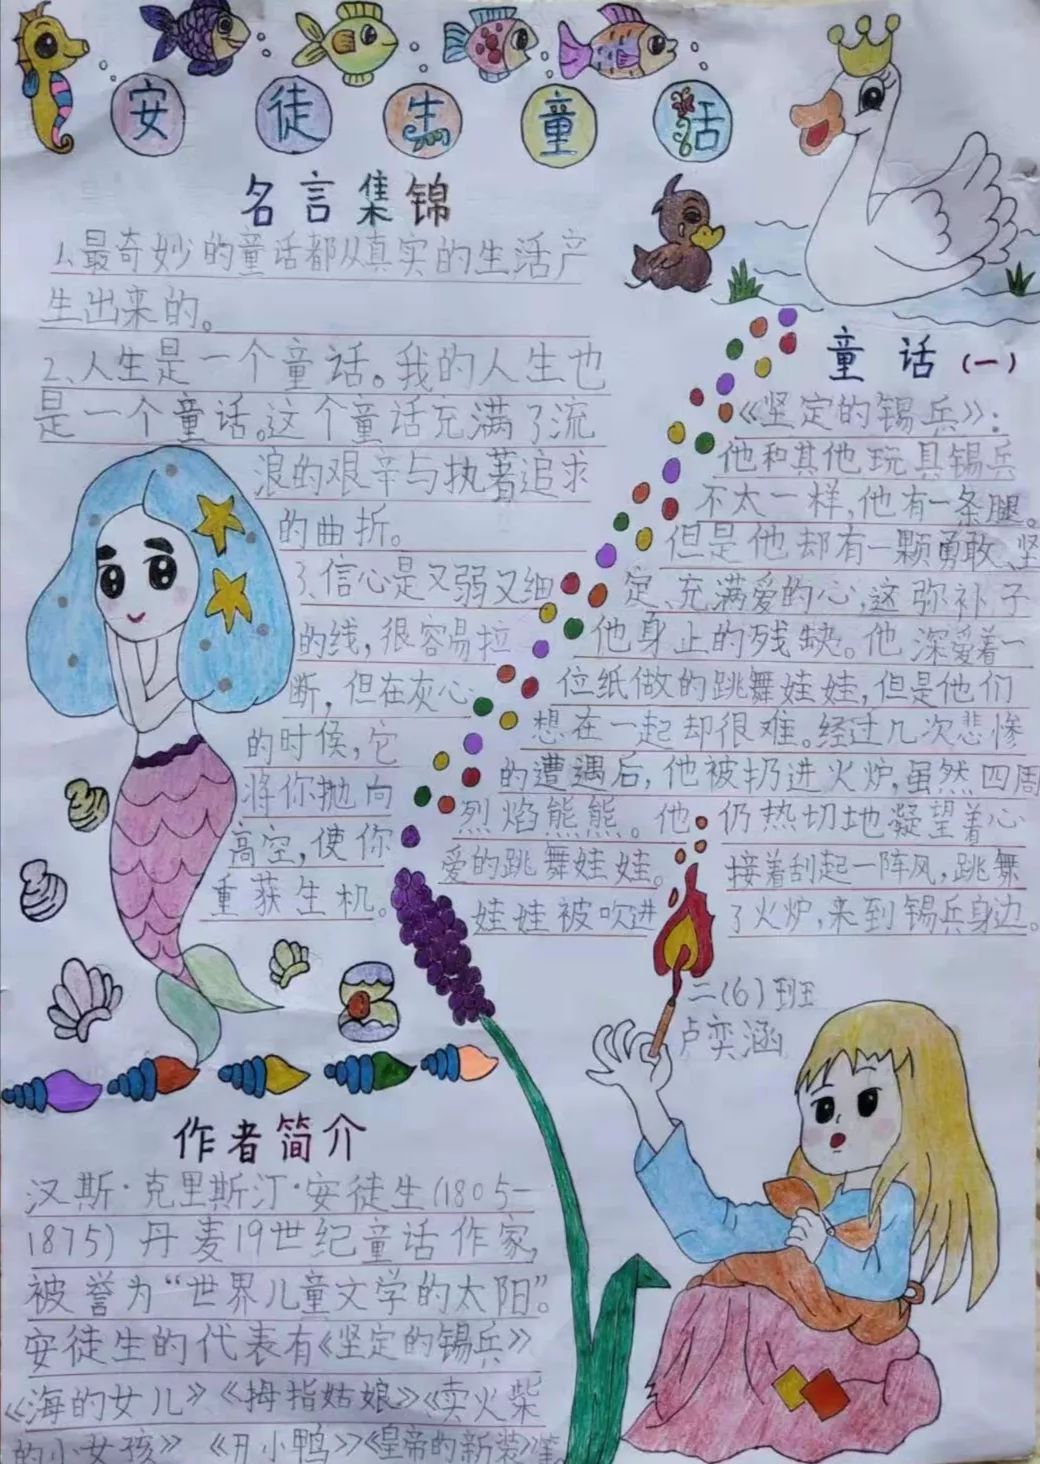 安徒生童话
名言集锦
1.最奇妙的童话都从真实的生活产
生出来的。
2、人生是一个童话。我的人生也
是一个童话。这个童话充满了流
浪的艰辛与执著追求
的曲折。
3、信心是又弱又细
的线，很容易拉
断，但在灰心
的时候，它
将你抛向
高空，使你
重获生机。
童话（一）
《坚定的锡兵》：
他和其他玩具锡兵
不太一样，他有一条腿。
但是他却有一颗勇敢、坚
定、充满爱的心，这弥补了
他身上的残缺。他深爱着一
位纸做的跳舞娃娃，但是他们
想在一起却很难。经过几次悲惨
的遭遇后，他被扔进火炉，虽然四周
烈焰熊熊。他仍热切地凝望着心
爱的跳舞娃娃。接着刮起一阵风，跳舞
娃娃被吹进了火炉，来到锡兵身边。
二（6）班
卢奕涵
作者简介
汉斯·克里斯汀·安徒生（1805-
1875）丹麦19世纪童话作家，
被誉为“世界儿童文学的太阳”。
安徒生的代表有《坚定的锡兵》
《海的女儿》《拇指姑娘》《卖火柴
的小女孩》《丑小鸭》《皇帝的新装》等。